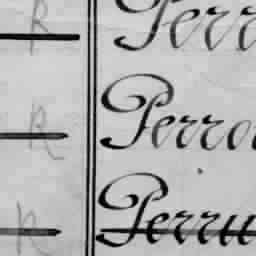 R Perr
R Perro
R Perru